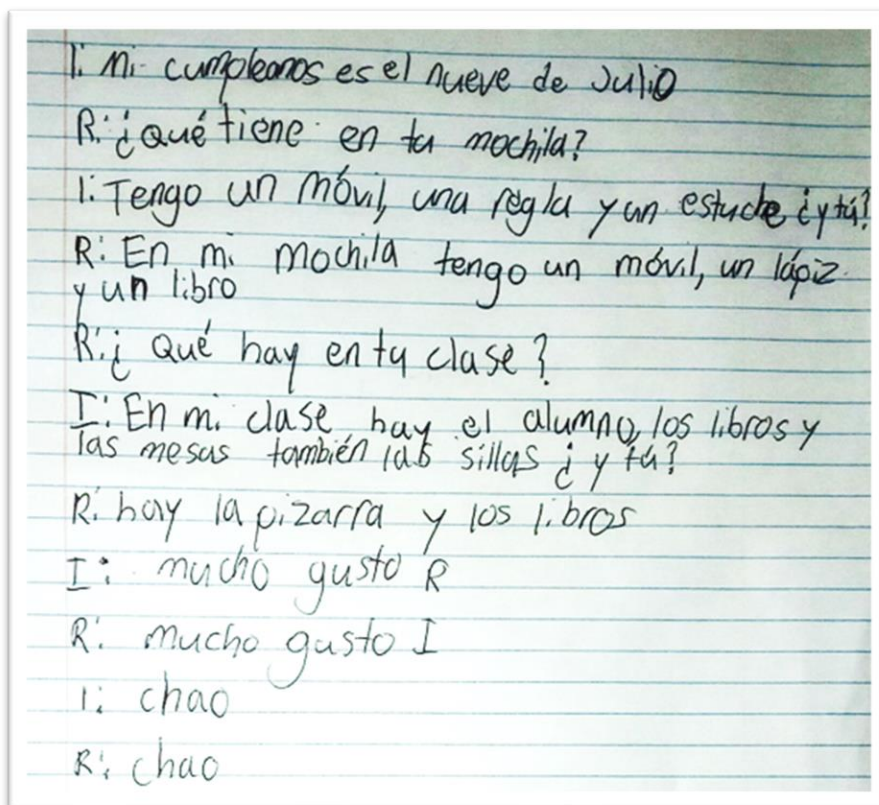 I: Mi cumpleanos es el nueve de Julio
R: ¿Qué tiene en tu mochila?
I: Tengo un móvil, una regla y un estuche ¿y tú?
R: En mi mochila tengo un móvil, un lápiz
y un libro
R: ¿Qué hay en tu clase?
I: En mi clase hay el alumno, los libros y
las mesas también las sillas ¿y tú?
R: hay la pizarra y los libros
I: mucho gusto R
R: mucho gusto I
I: chao
R: chao